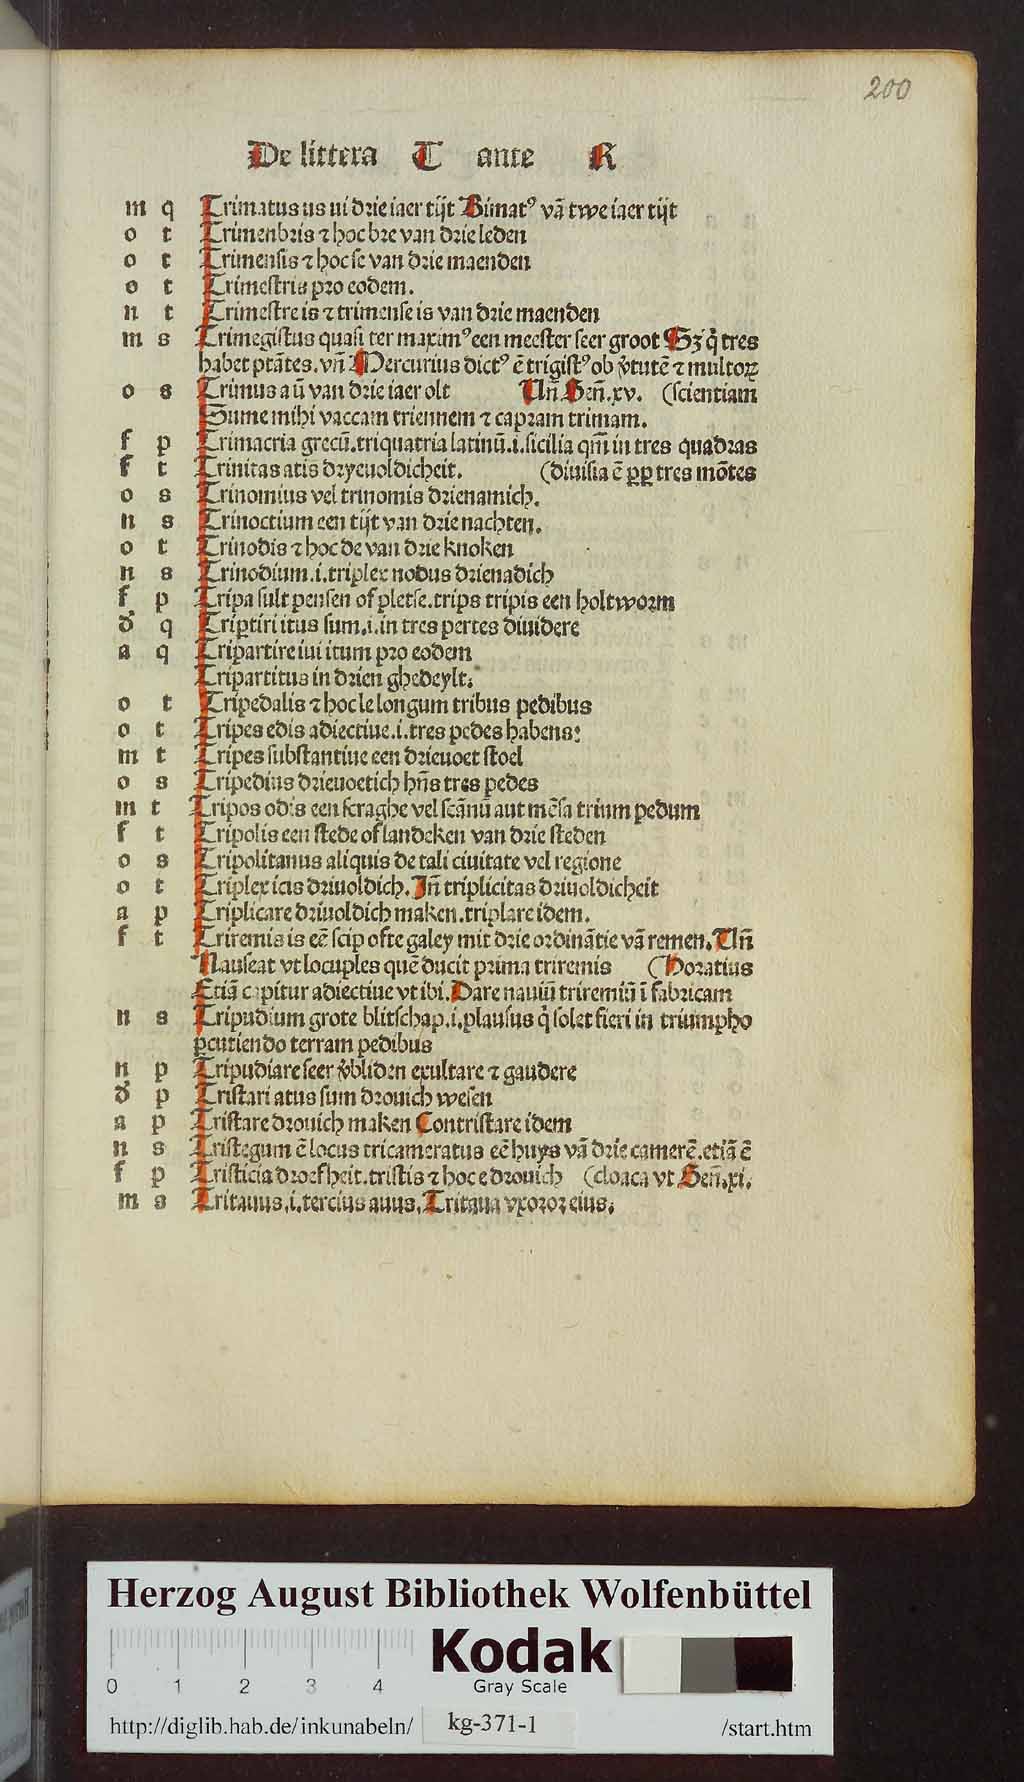 200
De littera T ante R
m q Trimatus us ui drie iaer tijt Bimatꝰ vā twe iaer tijt
o t Trimenbris ⁊ hoc bre van drie leden
o t Trimensis ⁊ hoc se van drie maenden
o t Trimestris pro eodem.
n t Trimestre is ⁊ trimense is van drie maenden
m s Trimegistus quasi ter maximꝰ een meester seer groot Sꝫ q̈ tres
habet ptātes. vn̄ Mercurius dictꝰ ē trigistꝰ ob v̈tutē ⁊ multoꝝ
o s Trimus a ū van drie iaer olt Un̄ Gen̄.xv. (scientiam
Sume mihi vaccam triennem ⁊ capram trimam.
f p Trimacria grecū.triquatria latinū.i.sicilia qm̄ in tres quadras
f t Trinitas atis dryeuoldicheit. (diuisia ē ꝓꝑ tres mōtes
o s Trinomius vel trinomis drienamich.
n s Trinoctium een tijt van drie nachten.
o t Trinodis ⁊ hoc de van drie knoken
n s Trinodium.i.triplex nodus drienadich
f p Tripa sult pensen of pletse.trips tripis een holtworm
d' q Triꝑtiri itus sum.i.in tres pertes diuidere
a q Tripartire iui itum pro eodem
Tripartitus in drien ghedeylt.
o t Tripedalis ⁊ hoc le longum tribus pedibus
o t Tripes edis adiectiue.i.tres pedes habens:
m t Tripes substantiue een drieuoet stoel
o s Tripedius drieuoetich hn̄s tres pedes
m t Tripos odis een scraghe vel scānū aut mēsa trium pedum
f t Tripolis een stede of landeken van drie steden
o s Tripolitanus aliquis de tali ciuitate vel regione
o t Triplex icis driuoldich. In̄ triplicitas driuoldicheit
a p Triplicare driuoldich maken.triplare idem.
f t Triremis is eē scip ofte galey mit drie ordinātie vā remen. Un̄
Nauseat vt locuples quē ducit prima triremis (Horatius
Etiā capitur adiectiue vt ibi. Dare nauiū triremiū ī fabricam
n s Tripudium grote blitschap.i.plausus q̈ solet fieri in triumpho
ꝑcutiendo terram pedibus
n p Tripudiare seer v̈bliden exultare ⁊ gaudere
d' p Tristari atus sum drouich wesen
a p Tristare drouich maken Contristare idem
n s Tristegum ē locus tricameratus eē huys vā drie camerē.etiā ē
f p Tristicia droefheit.tristis ⁊ hoc e drouich (cloaca vt Gen̄.xi.
m s Tritauus.i.tercius auus. Tritaua vxoror eius.
Herzog August Bibliothek Wolfenbüttel
Kodak
Gray Scale
0 1 2 3 4
http://diglib.hab.de/inkunabeln/ kg-371-1 /start.htm